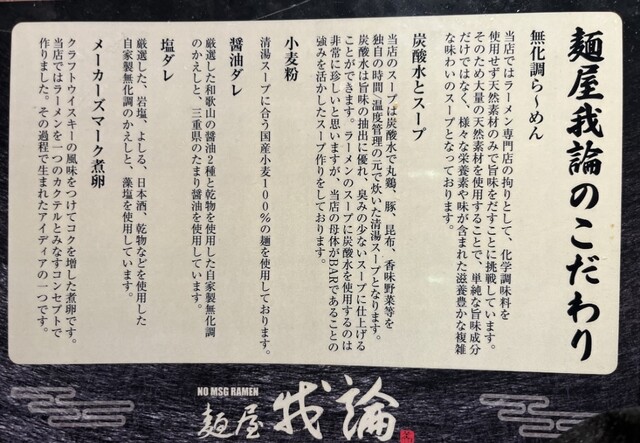 麺屋我論のこだわり
無化調ら〜めん
当店ではラーメン専門店の拘りとして、化学調味料を
使用せず天然素材のみで旨味をだすことに挑戦しています。
そのため大量の天然素材を使用することで、単純な旨味成分
だけではなく、様々な栄養素や味が含まれた滋養豊かな複雑
な味わいのスープとなっております。
炭酸水とスープ
当店のスープは炭酸水で丸鶏、豚、昆布、香味野菜等を
独自の時間、温度管理の元で炊いた清湯スープとなります。
炭酸水は旨味の抽出に優れ、臭みの少ないスープに仕上げる
ことができます。ラーメンのスープに炭酸水を使用するのは
非常に珍しいと思いますが、当店の母体がBARであることの
強みを活かしたスープ作りをしております。
小麦粉
清湯スープに合う国産小麦100%の麺を使用しております。
醤油ダレ
厳選した和歌山の醤油2種と乾物を使用した自家製無化調
のかえしと、三重県のたまり醤油を使用しています。
塩ダレ
厳選した、岩塩、よしる、日本酒、乾物などを使用した
自家製無化調のかえしと、藻塩を使用しています。
メーカーズマーク煮卵
クラフトウイスキーの風味をつけてコクを増した煮卵です。
当店ではラーメンを一つのカクテルとみなすコンセプトで
作りました。その過程で生まれたアイディアの一つです。
NO MSG RAMEN
麺屋 我論